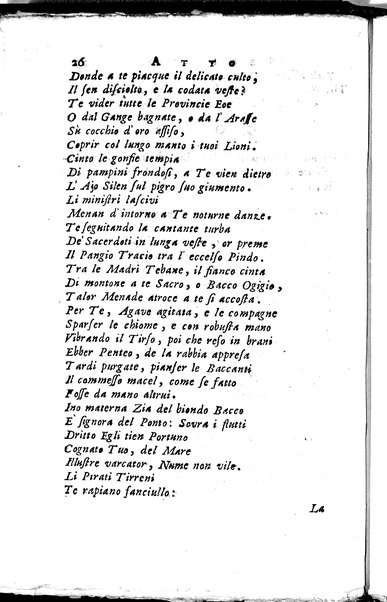 26 ATTO
Donde a te piacque il delicato culto,
Il sen disciolto, e la codata veste?
Te vider tutte le Provincie Eoe
O dal Gange bagnate, o da l'Arasse
Sù cocchio d'oro assiso,
Coprir col lungo manto i tuoi Lioni.
Cinto le gonfie tempia
Di pampini frondosi, a Te vien dietro
L'Ajo Silen sul pigro suo giumento.
Li ministri lascivi
Menan d'intorno a Te noturne danze.
Te seguitando la cantante turba
De' Sacerdoti in lunga veste, or preme
Il Pangio Tracio tra l'eccelso Pindo.
Tra le Madri Tebane, il fianco cinta
Di montone a te Sacro, o Bacco Ogigio,
Talor Menade atroce a te si accosta.
Per Te, Agave agitata, e le compagne
Sparser le chiome, e con robusta mano
Vibrando il Tirso, poi che reso in brani
Ebber Penteo, de la rabbia appresa
Tardi purgate, pianser le Baccanti
Il commesso macel, come se fatto
Fosse da mano altrui.
Ino materna Zia del biondo Bacco
E' signora del Ponto: Sovra i flutti
Dritto Egli tien Portuno
Cognato Tuo, del Mare
Illustre varcator, Nume non vile.
Li Pirati Tirreni
Te rapiano fanciullo:
La